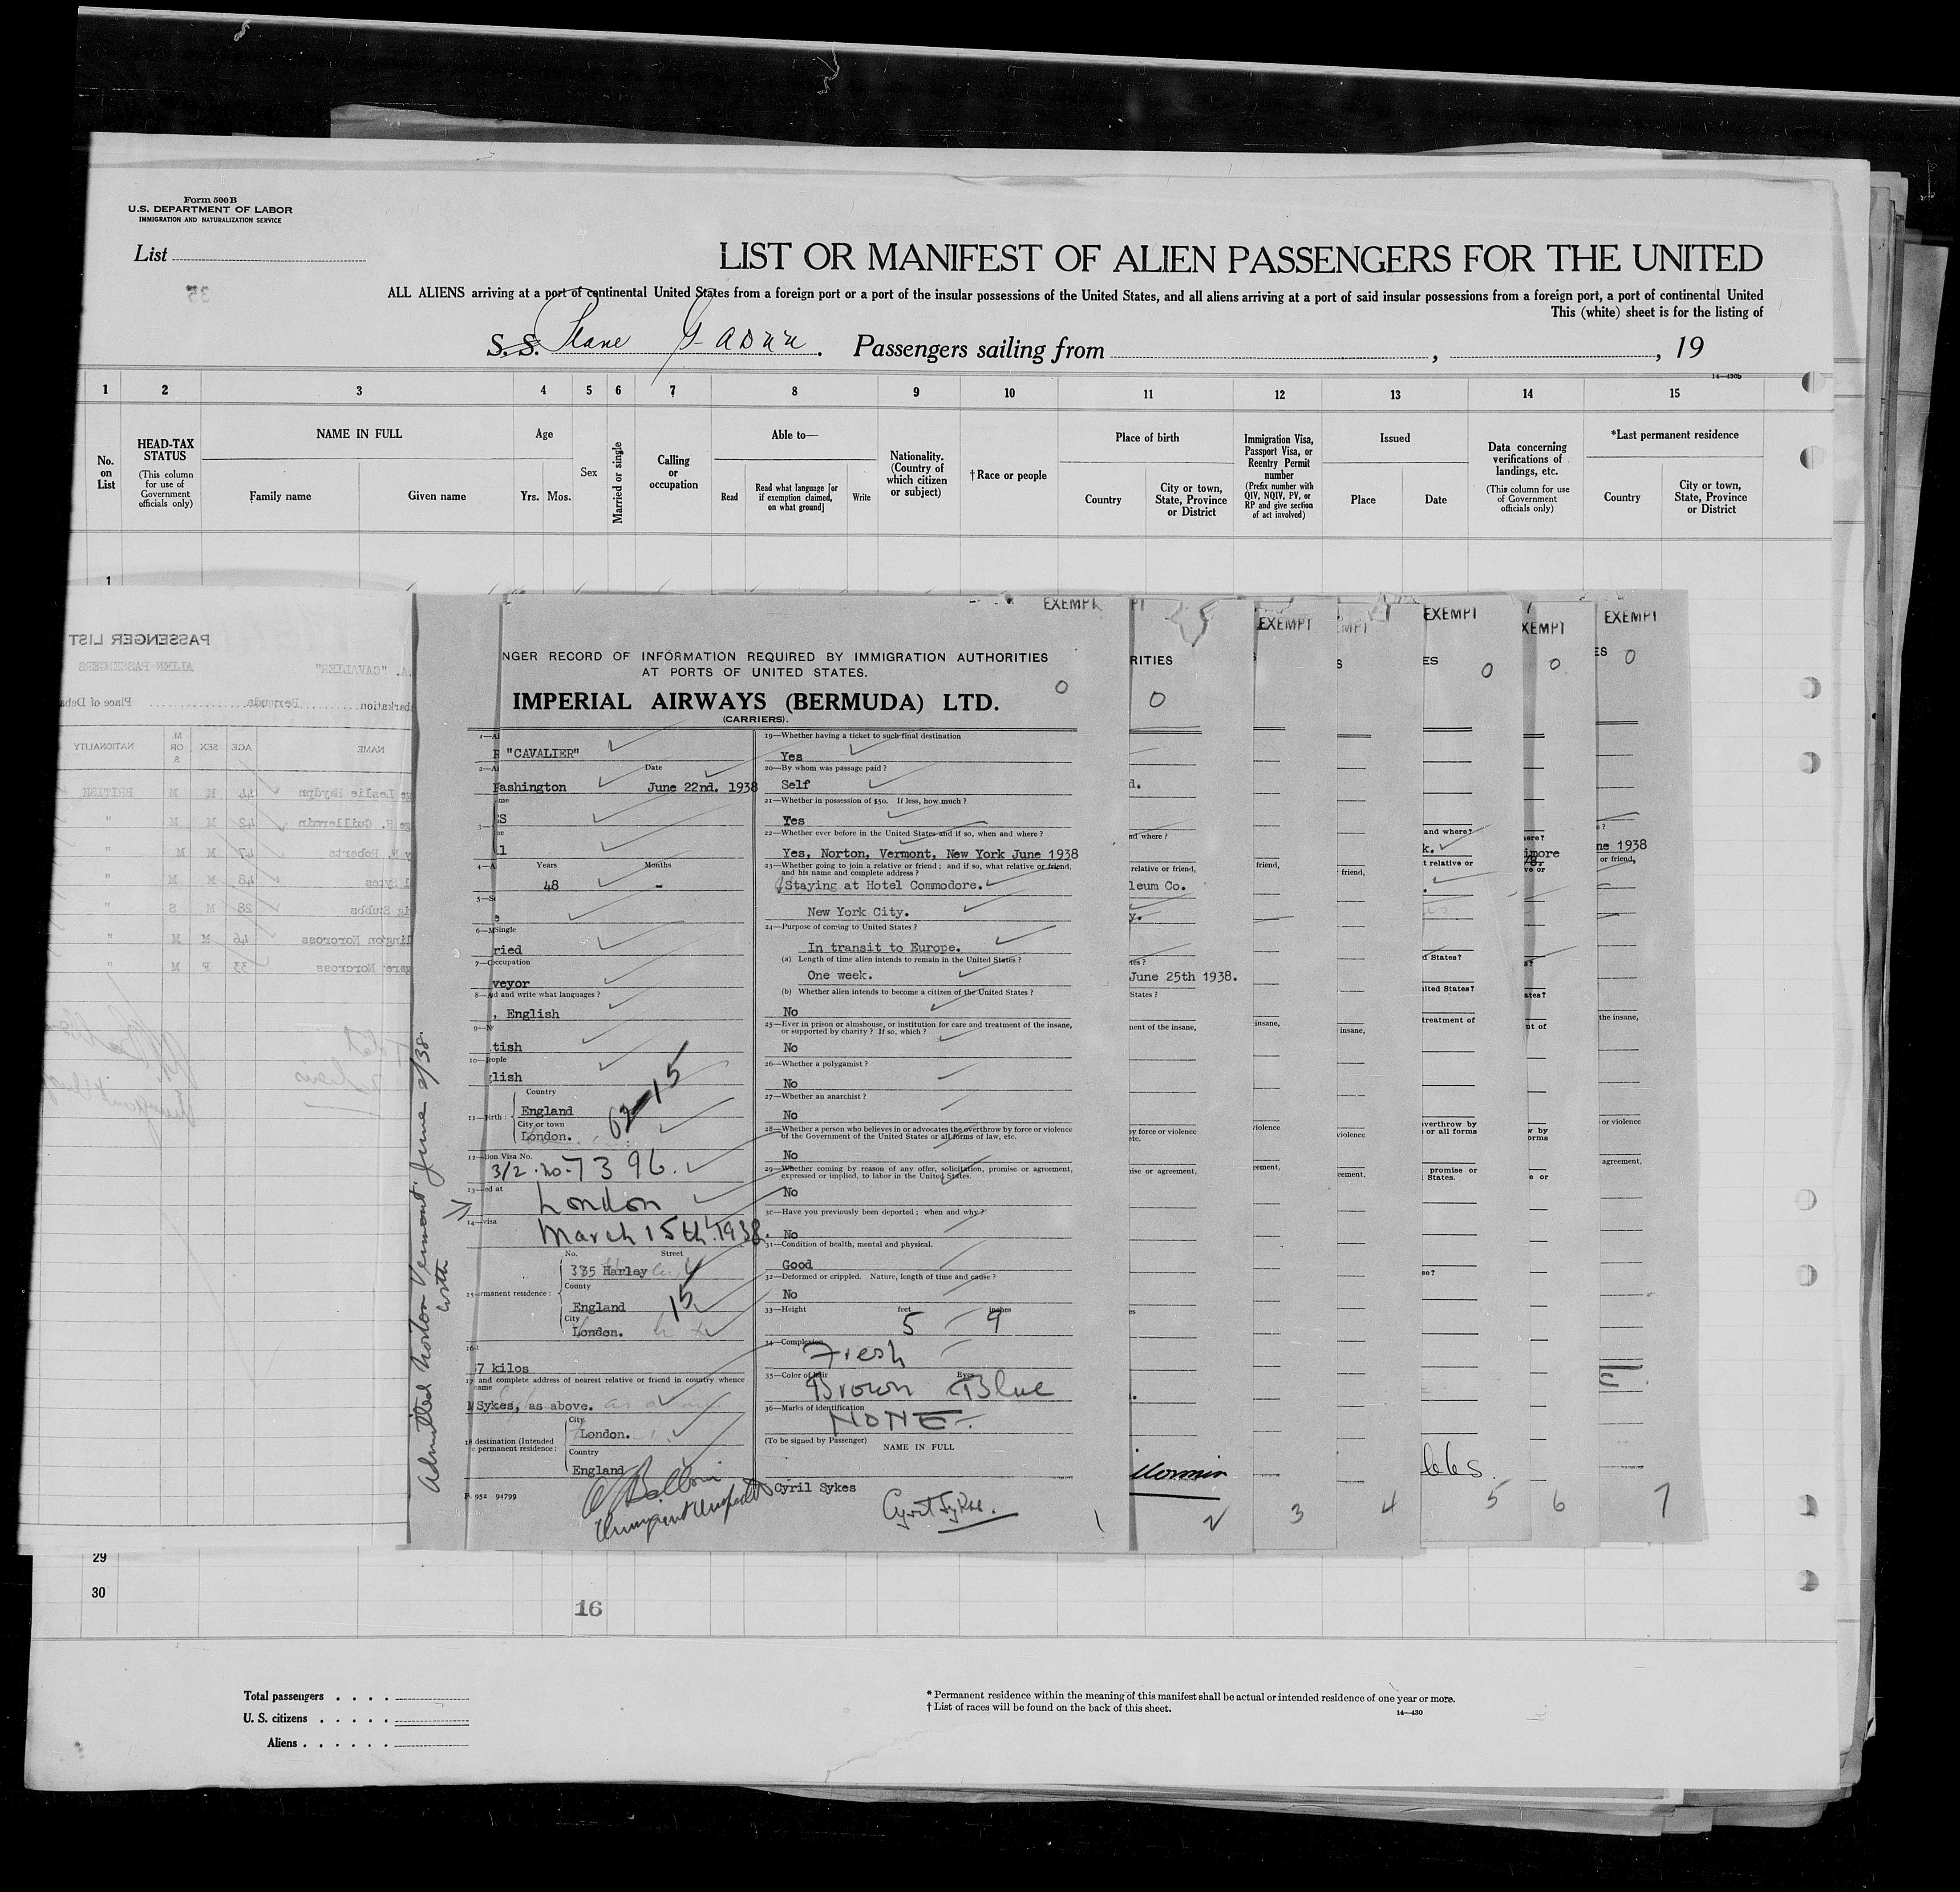 Form 500B
U.S. DEPARTMENT OF LABOR
IMMIGRATION AND NATURALIZATION SERVICE
List
LIST OR MANIFEST OF ALIEN PASSENGERS FOR THE UNITED
35
ALL ALIENS arriving at a port of continental United States from a foreign port or a port of the insular possessions of the United States, and all aliens arriving at a port of said insular possessions from a foreign port, a port of continental United
This (white) sheet is for the listing of
S.S. Plane G-ADUU. Passengers sailing from , , 19
14—430b
1 2 3 4 5 6 7 8 9 10 11 12 13 14 15
No. on List
HEAD-TAX STATUS
(This column for use of Government officials only)
NAME IN FULL
Family name Given name
Age
Yrs. Mos.
Sex
Married or single
Calling or occupation
Able to—
Read
Read what language [or if exemption claimed, on what ground]
Write
Nationality. (Country of which citizen or subject)
†Race or people
Place of birth
Country
City or town, State, Province or District
Immigration Visa, Passport Visa, or Reentry Permit number
(Prefix number with QIV, NQIV, PV, or RP and give section of act involved)
Issued
Place Date
Data concerning verifications of landings, etc.
(This column for use of Government officials only)
*Last permanent residence
Country
City or town, State, Province or District
1
PASSENGER LIST
ALIEN PASSENGERS
"CAVALIER"
barkation Bermuda Place of Deba
NAME AGE SEX M. OR S. NATIONALITY
ge Leslie Haydyn 44 M M BRITISH
ge H. Guillermin 42 M M "
y F. Roberts 47 M M "
l Sykes 48 M M "
ig Stubbs 28 M S "
lington Norcross 46 M M "
gare Norcross 33 F M "
Admitted Norton Vermont June 2/38.
EXEMPT
NGER RECORD OF INFORMATION REQUIRED BY IMMIGRATION AUTHORITIES
AT PORTS OF UNITED STATES.
IMPERIAL AIRWAYS (BERMUDA) LTD.
(CARRIERS).
0
"CAVALIER"
Date
ashington June 22nd. 1938
S
l
Years Months
48 -
Single
ried
occupation
veyor
d and write what languages ?
, English
tish
eople
lish
Country
England
City or town
London.
62-15
tion Visa No.
3/2 . No. 7396.
ed at
London
visa
March 15th. 1938.
No. Street
335 Harley
County
England
15
City
London.
rmanent residence :
7 kilos
and complete address of nearest relative or friend in country whence
Sykes, as above.
City
London.
destination (Intended
permanent residence :
Country
England
952 94799
19—Whether having a ticket to such final destination
Yes
20—By whom was passage paid ?
Self
21—Whether in possession of $50. If less, how much ?
Yes
22—Whether ever before in the United States and if so, when and where ?
Yes, Norton, Vermont, New York June 1938
23—Whether going to join a relative or friend ; and if so, what relative or friend,
and his name and complete address ?
Staying at Hotel Commodore.
New York City.
24—Purpose of coming to United States ?
In transit to Europe.
(a) Length of time alien intends to remain in the United States ?
One week.
(b) Whether alien intends to become a citizen of the United States ?
No
25—Ever in prison or almshouse, or institution for care and treatment of the insane,
or supported by charity ? If so, which ?
No
26—Whether a polygamist ?
No
27—Whether an anarchist ?
No
28—Whether a person who believes in or advocates the overthrow by force or violence
of the Government of the United States or all forms of law, etc.
No
29—Whether coming by reason of any offer, solicitation, promise or agreement,
expressed or implied, to labor in the United States.
No
30—Have you previously been deported ; when and why ?
No
31—Condition of health, mental and physical.
Good
32—Deformed or crippled. Nature, length of time and cause ?
No
33—Height feet inches
5 9
34—Complexion
Fresh
35—Color of Hair Eyes
Brown Blue
36—Marks of identification
NONE.
(To be signed by Passenger) NAME IN FULL
Cyril Sykes
Cyril Sykes.
1
RITIES
0
d.
nd where ?
relative or friend,
leum Co.
y.
June 25th 1938.
States ?
ment of the insane,
by force or violence
etc.
ise or agreement,
2
EXEMPT
friend,
insane,
violence
ement,
3
friend,
insane,
violence
ement,
4
EXEMPT
ES 0
and where?
k.
t relative or
d States?
ited States?
treatment of
verthrow by
or all forms
promise or
States.
se?
5
EXEMPT
0
imore
6
EXEMPT
ES 0
ne 1938
or friend,
the insane,
or violence
agreement,
7
29
30
16
Total passengers . . . .
U. S. citizens . . . . .
Aliens . . . . . .
* Permanent residence within the meaning of this manifest shall be actual or intended residence of one year or more.
† List of races will be found on the back of this sheet.
14—430